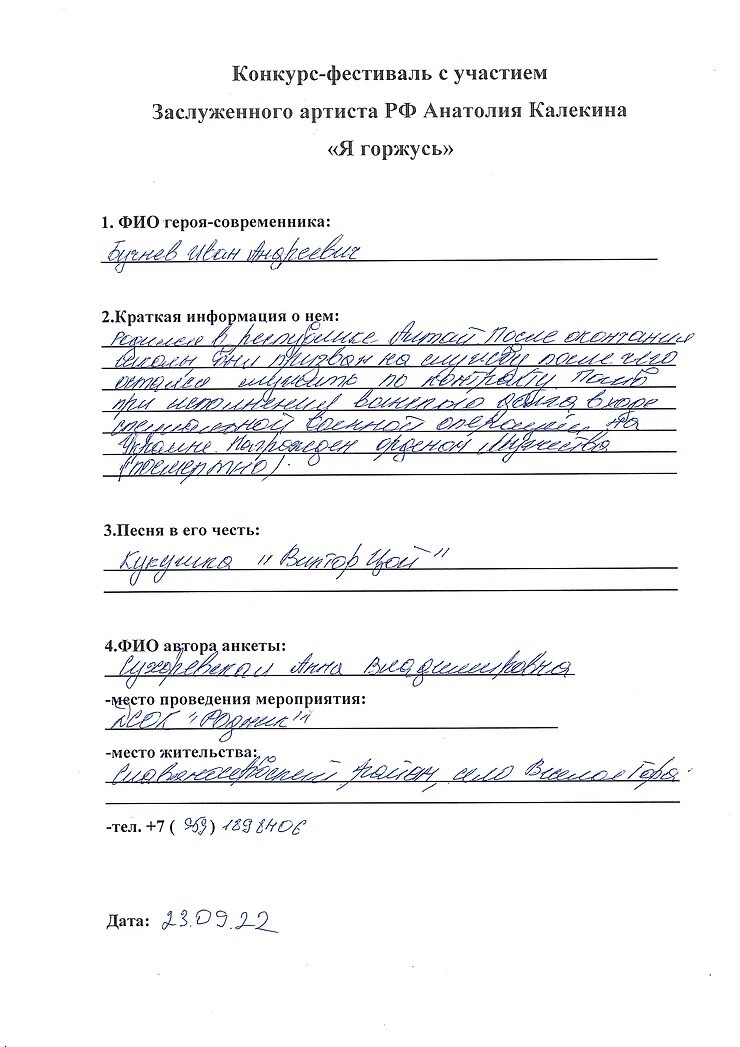 Конкурс-фестиваль с участием
Заслуженного артиста РФ Анатолия Калекина
«Я горжусь»
1. ФИО героя-современника:
Бучнев Иван Андреевич
2.Краткая информация о нем:
Родился в республике Алтай После окончания
школы был призван на службу после чего
остался служить по контракту Погиб
при исполнение воинского долга в ходе
специальной военной операции на
Украине. Награжден орденом Мужества
(посмертно).
3.Песня в его честь:
Кукушка "Виктор Цой"
4.ФИО автора анкеты:
Сухаревская Анна Владимировна
-место проведения мероприятия:
ДСОК "Родник"
-место жительства:
Славяносербский район, село Веселая Гора.
-тел. +7 ( 959) 1898406
Дата: 23.09.22